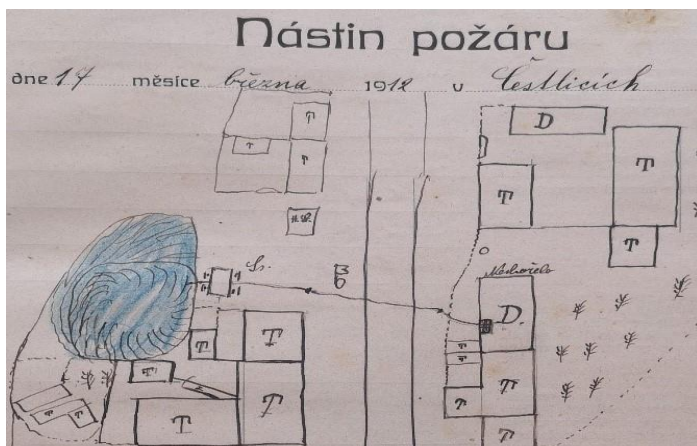 Nástin požáru
dne 14 měsíce března 1912 v Čestlicích
T
T
T
D
T
T
T
D.
T
T
T
T
T
T
T
T
T
T
T
T